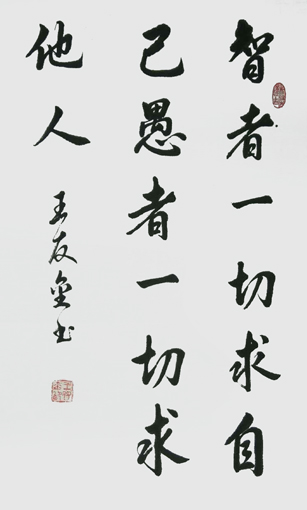 智者一切求自
己愚者一切求
他人
王友金书